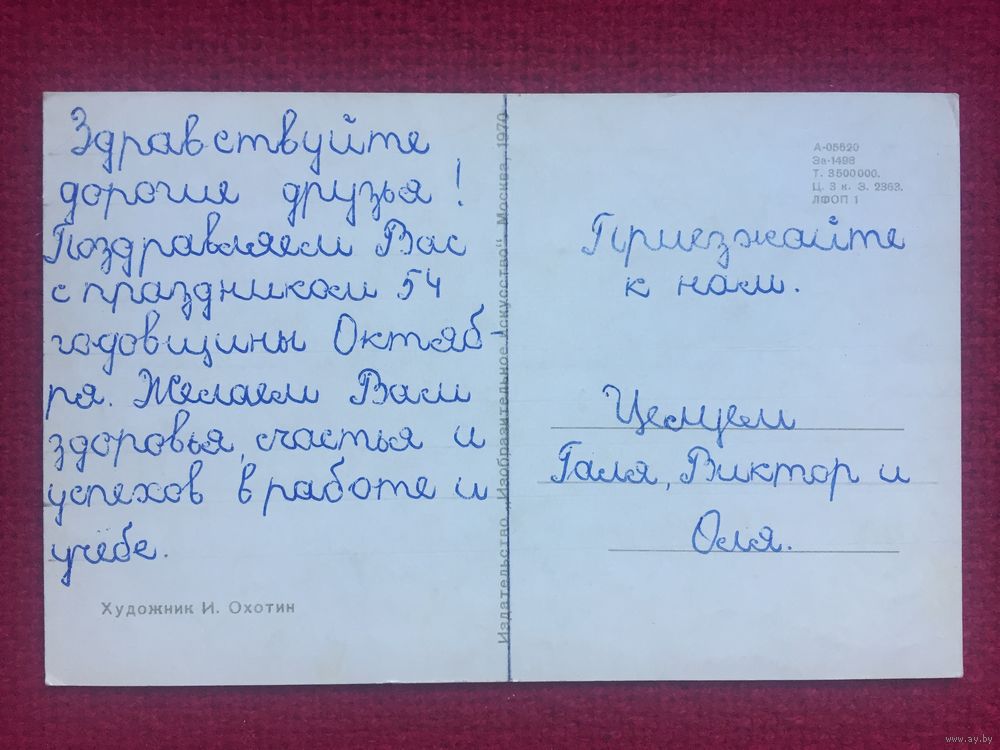 Здравствуйте
дорогие друзья!
Поздравляем Вас
с праздником 54
годовщины Октяб-
ря. Желаем Вам
здоровья, счастья и
успехов в работе и
учёбе.
Художник И. Охотин
Издательство „Изобразительное искусство“. Москва, 1970
А-05620
За-1498
Т. 3500000.
Ц. 3 к. З. 2363.
ЛФОП 1
Приезжайте
к нам.
Целуем
Галя, Виктор и
Оля.
www.ay.by